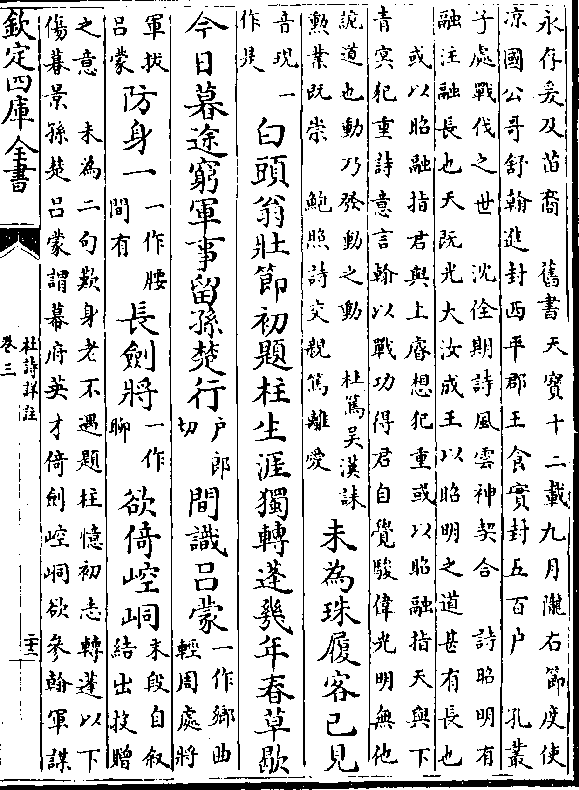 永存爰及苗裔　舊書天寶十二載九月隴右節度使
凉國公哥舒翰進封西平郡王食實封五百户　孔叢
子處戰伐之世　沈佺期詩風雲神契合　詩昭明有
融注融長也天既光大汝成王以昭明之道甚有長也
或以昭融指君與上睿想犯重或以昭融指天與下
青冥犯重詩意言翰以戰功得君自覺駿偉光明無他
說道也動乃發動之動　杜篤吳漢誄
勲業既崇　鮑照詩交親篤離愛
未為珠履客已見
音現一
作是
白頭翁壯節初題柱生涯獨轉蓬幾年春草歇
今日暮途窮軍事留孫楚行
户郎
切
間識吕蒙
一作鄉曲
輕周處將
軍拔
吕蒙
防身一
一作腰
間有
長劍將
一作
聊
欲倚崆峒
末段自叙
結出投贈
之意　未為二句歎身老不遇題柱憶初志轉蓬以下
傷暮景孫楚吕蒙謂幕府英才倚劍崆峒欲參翰軍謀
欽定四庫全書
杜詩詳註
卷三
二十三